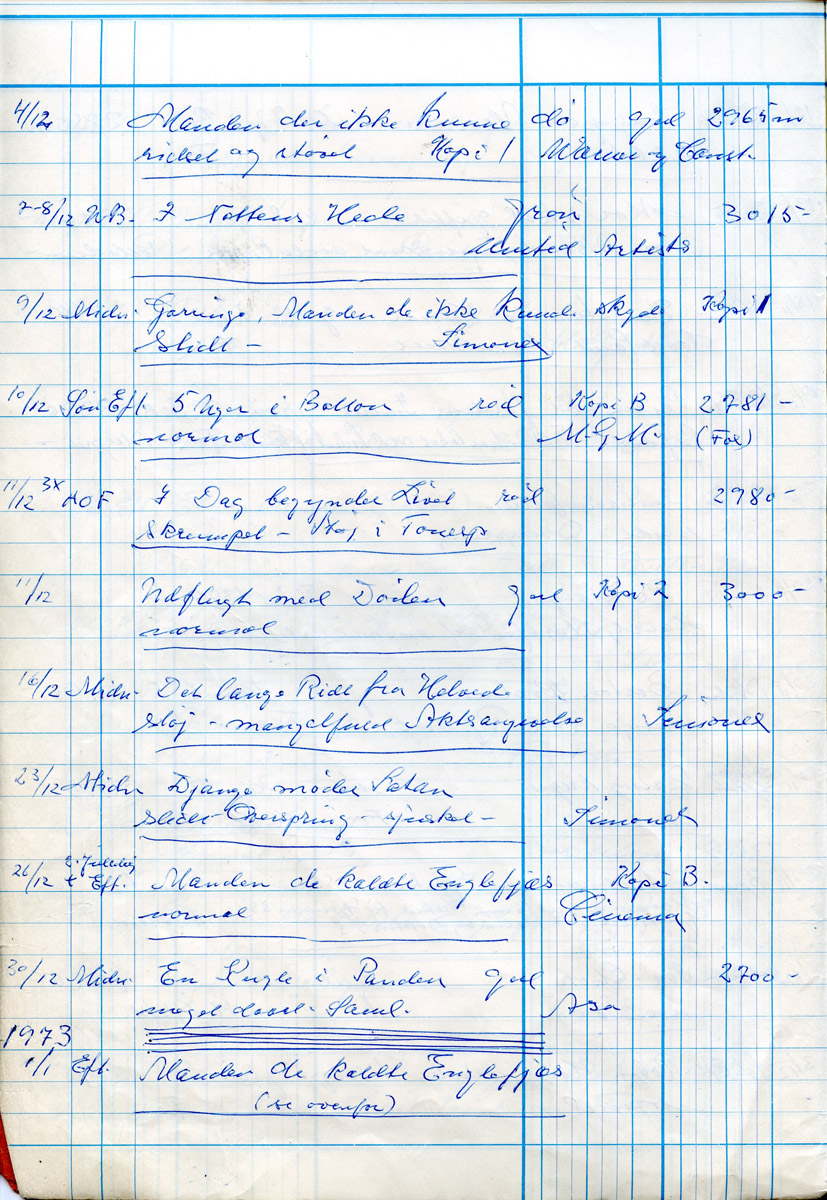 4/12 Manden der ikke kunne dø gul 2965 m
Kopi 1 Warner og Const.
7-8/12 NB. I Nattens Hede grøn 3015-
United Artists
9/12 Midn. Gorringo, Manden de ikke kunde skyde Kopi 1
slidt - Simonel
10/12 Søn Eft. 5 Uger i Ballon rød Kopi B 2781 -
normal M.G.M. (Fox)
11/12 3x AOF I Dag begynder Livet rød 2980-
skrumpet - støj i Tonesp
11/12 Udflugt med Døden gul Kopi 2 3000-
normal
16/12 Midn- Det lange Ridt fra Helvede
støj - mangelfuld Aktsangivelse Simonel
23/12 Midn Django møder Satan
slidt - Overspring - sjusket - Simonel
26/12 2. Juledag + Eft. Manden de kaldte Englefjæs Kopi B.
normal Cinema
30/12 Midn. En Kugle i Panden gul 2700-
noget daarl. Saml. Asa
1973
1/1 Eft. Manden de kaldte Englefjæs
(se ovenfor)